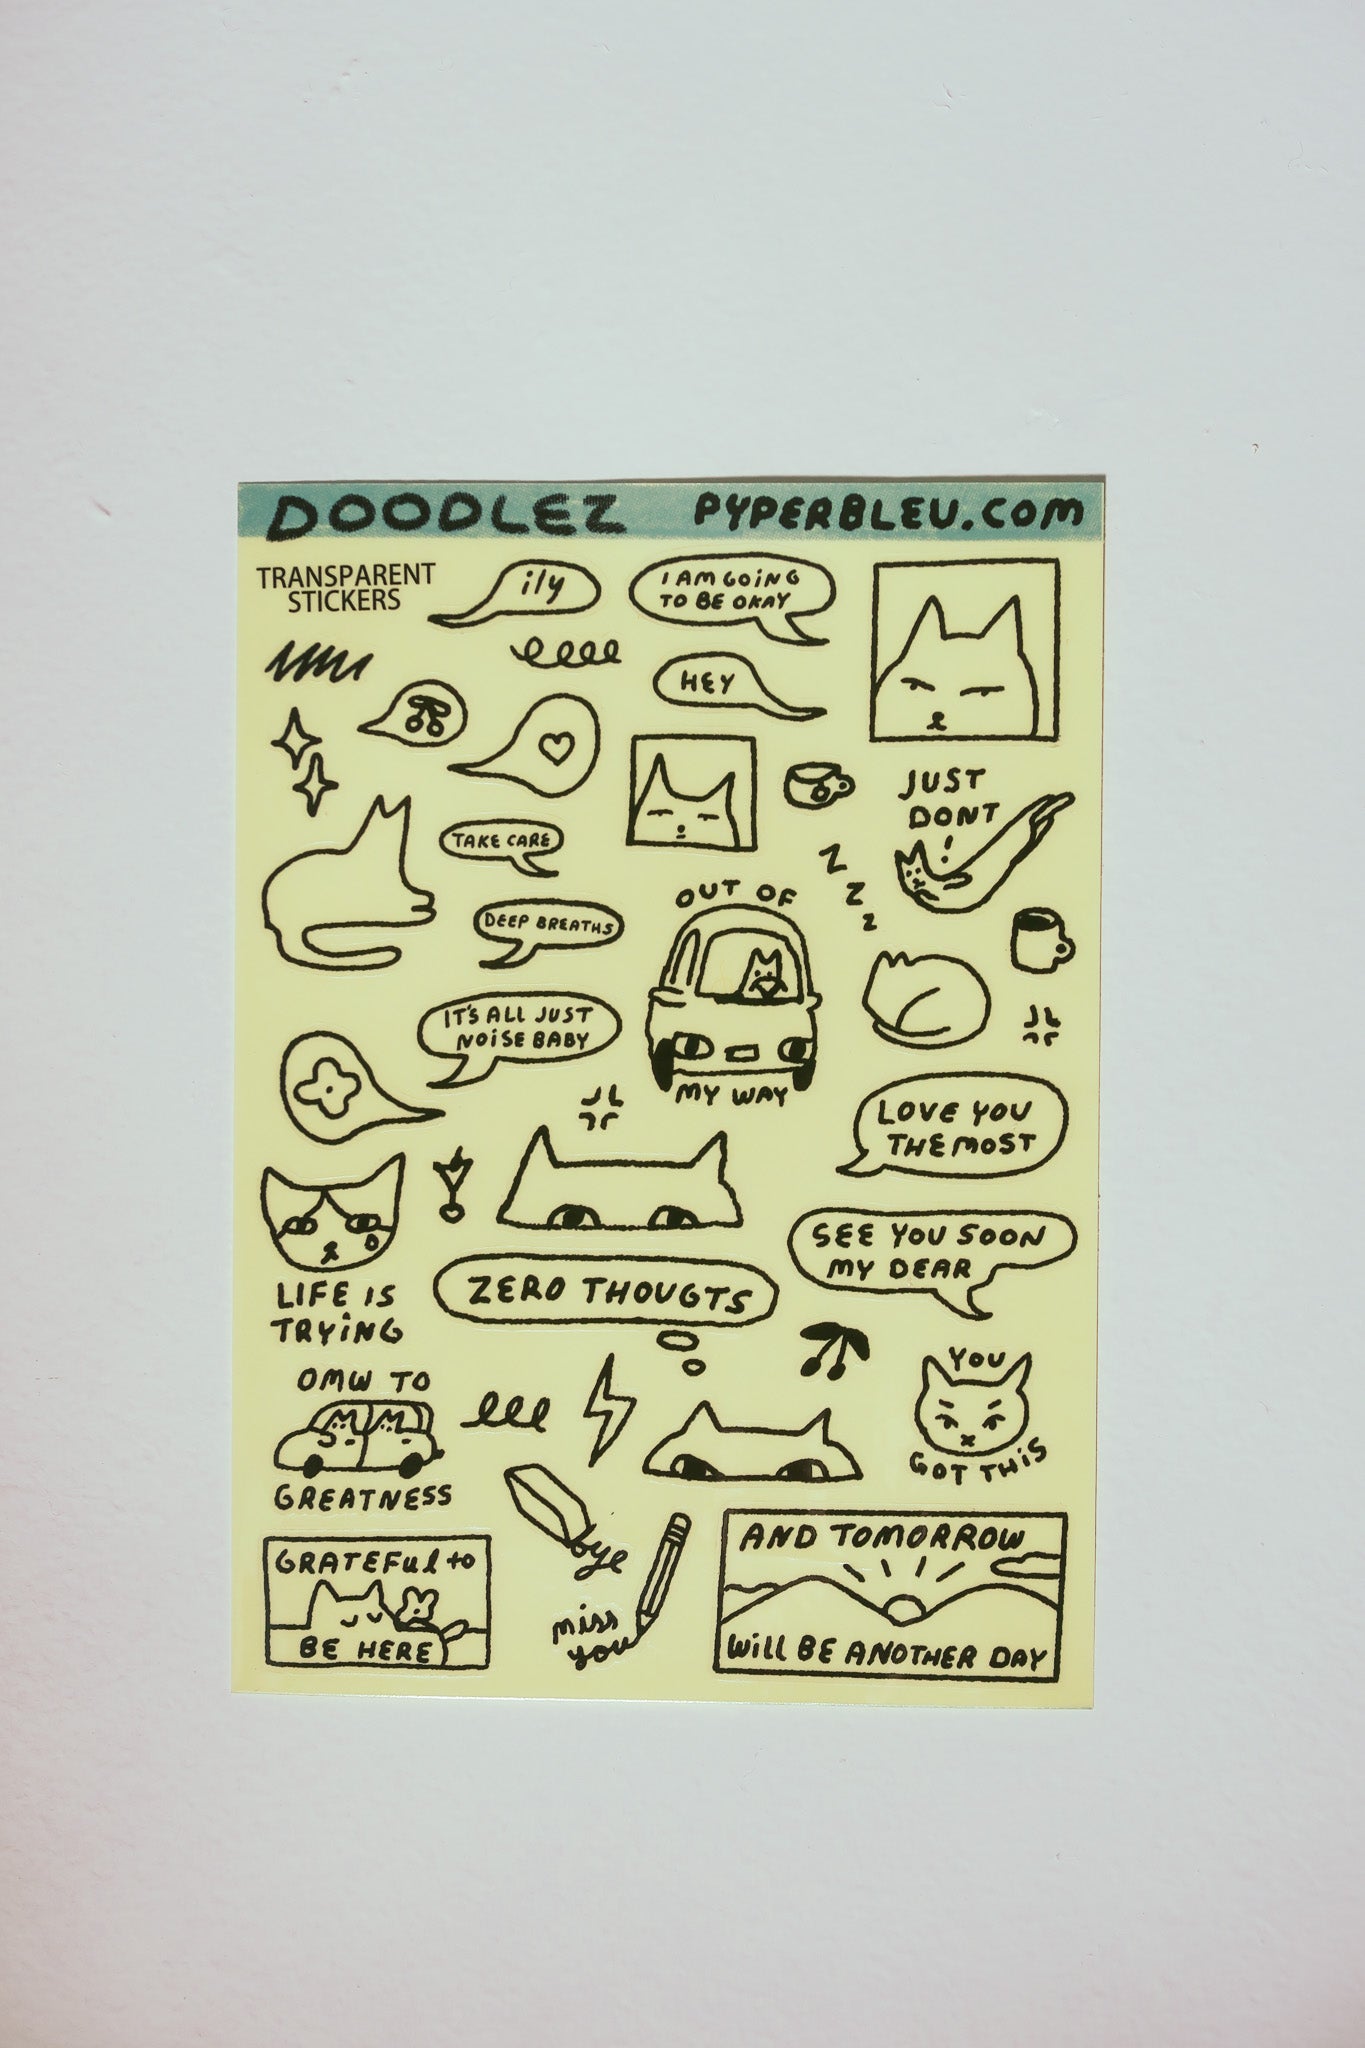 DOODLEZ PYPERBLEU.COM
TRANSPARENT
STICKERS
ily
I AM GOiNG
TO BE OKAY
HEY
JUST
DONT
!
TAKE CARE
Z
Z
Z
OUT OF
MY WAY
DEEP BREATHS
IT'S ALL JUST
NOiSE BABY
LOVE YOU
THE MOST
SEE YOU SOON
MY DEAR
LIFE IS
TRYiNG
ZERO THOUGTS
YOU
GOT THiS
OMW TO
GREATNESS
bye
miss
you
GRATEFUl to
BE HERE
AND TOMORROW
Will BE ANOTHER DAY